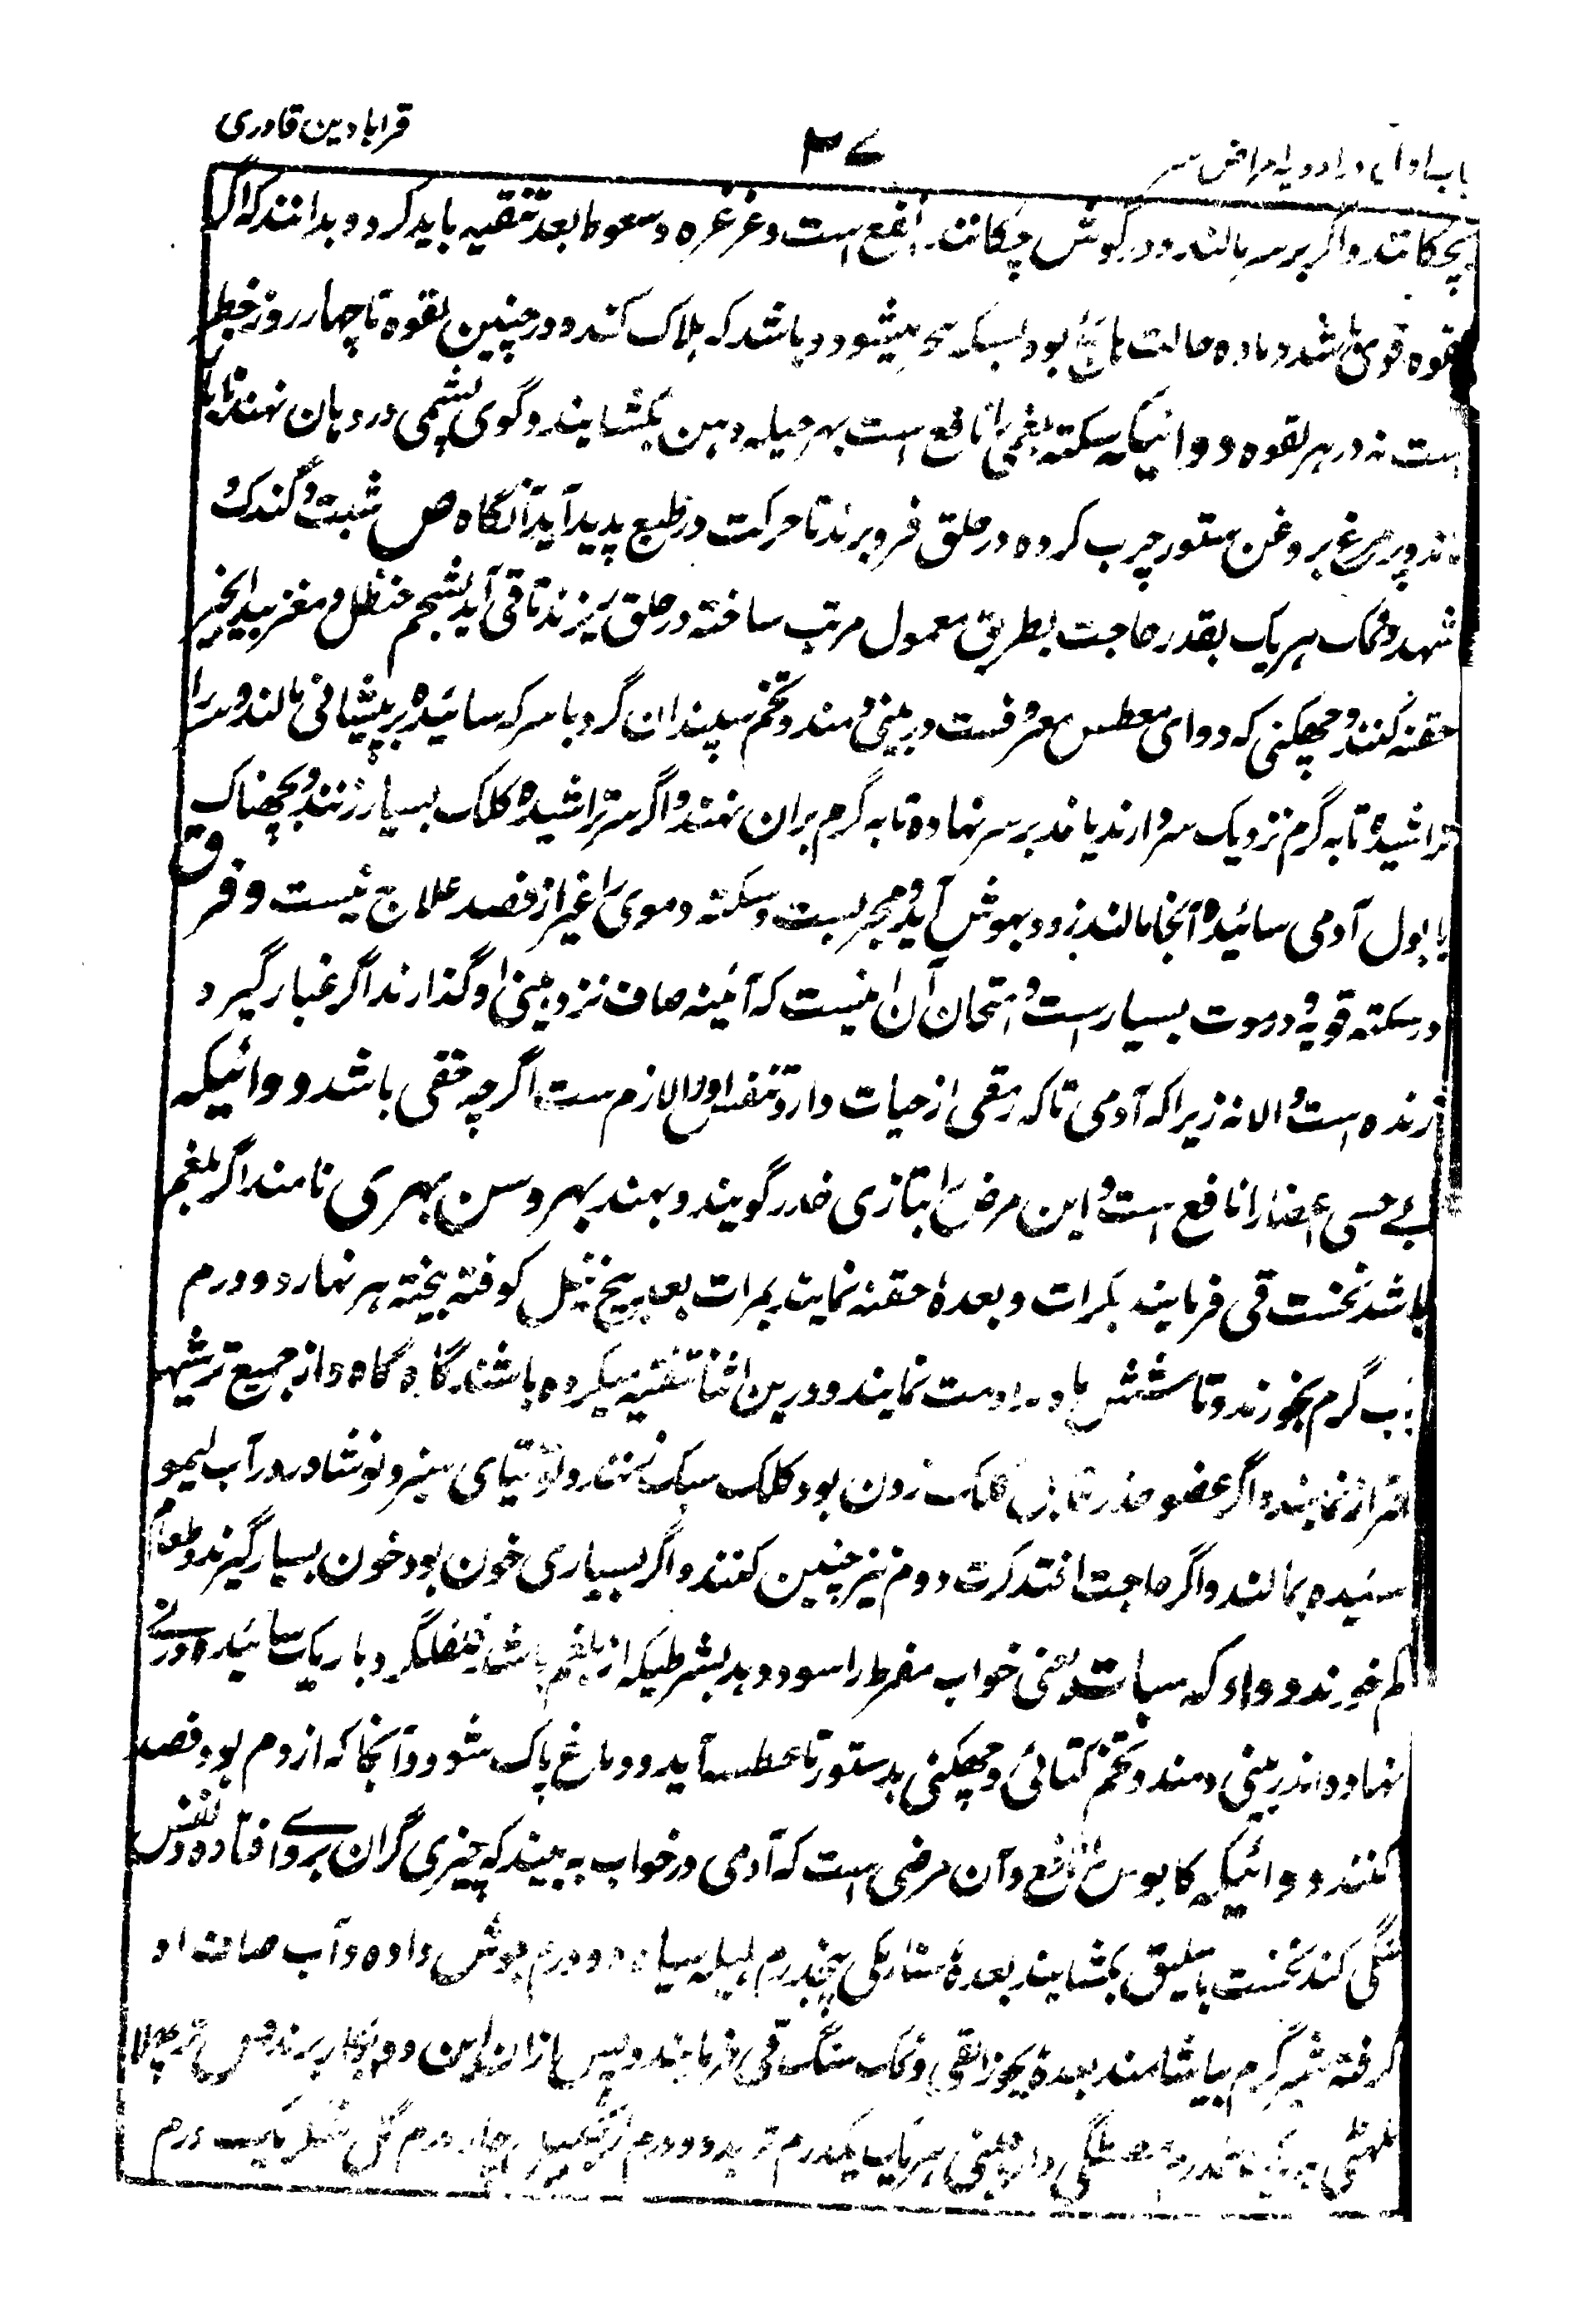 باب اول در ادویه امراض سر ۳۷ قرابادین قادری
بچکانند و اگر بر سر مالند و در گوش چکانند انفع است و غرغره و سعوط بعد تنقیه باید کرد و بدانند که اگر
لقوه قوی باشد و ماده حالت مائع بود بسکته منجر میشود و باشد که هلاک کند و در چنین لقوه تا چهار روز خطر
است نه در هر لقوه دوائیکه سکته بلغمی را نافع است بهر حیله دهن بکشایند و گوی پشمی در دهان نهند تا
و پر مرغ بروغن ستور چرب کرده در حلق فرو برند تا حرکت در طبع پدید آید آنگاه ص شبت و گندک و
شهد و نمک هر یک بقدر حاجت بطریق معمول مرتب ساخته در حلق ریزند تا قی آید بشحم حنظل و مغز بید انجیر
حقنه کنند و چهکنی که دوای معطس معروفست در بینی دمند و تخم سپندان گرد با سرکه سائیده بر پیشانی مالند و سر را
تراشیده تابه گرم نزدیک سر دارند یا نمد بر سر نهاده تابه گرم بران نهند و اگر سر تراشیده کلک بسیار زنند و بچهناک
با بول آدمی سائیده آنجا مالند زود بهوش آید و مجربست و سکته دموی را غیر از فصد علاج نیست و فرق
در سکته قویه و موت بسیار است و امتحان آن اینست که آئینه صاف نزد بینی او گذارند اگر غبار گیرد
زنده است و الا نه زیرا که آدمی تا که رمقی از حیات دارد تنفس او را لازم ست اگرچه خفی باشد دوائیکه
بے حسی اعضا را نافع است و این مرض را بتازی خدر گویند و بهند بهر و سن بهری نامند اگر بلغم
باشد نخست قی فرمایند بکرات و بعدهٔ حقنه نمایند بمرات بعد بیخ کوفته بیخته هر نهار دو درم
بآب گرم بخورند و تا شش ماه مداومت نمایند و درین اثنا تنقیه میکرده باشند گاه گاه و از جمیع ترشیها
احتراز نمایند و اگر عضو خدر قابل کلک زدن بود کلک سبک زنند و توتیای سبز و نوشادر در آب لیمو
سئیده بمالند و اگر حاجت افتد کرت دوم نیز چنین کنند و اگر بسیاری خون بود خون بسیار گیرند و طعام
کم خورند دواء که سبات یعنی خواب مفرط را سود دهد بشرطیکه از بلغم باشد فلفل گرد باریک سائیده در نے
نهاده اندر بینی دمند و تخم کتائی و چهکنی بدستور تا عطسه آید و دماغ پاک شود و آنجا که از دم بود فصد
کنند دوائیکه کابوس را نافع و آن مرضی است که آدمی در خواب به بیند که چیزی گران بروے افتاده و نفس
تنگی کند نخست باسلیق بکشایند بعدهٔ سنارمکی پنجدرم هلیله سیاه دو درم جوش داده و آب صاف او
گرفته شیر گرم بیاشامند بعدهٔ بجوز القی و نمک سنگ قی فرمایند و پس ازان این دوا بکار برند ص تر پهلا
ملهٹی مصطگی دارچینی هر یک یکدرم تربد دو درم زنجبیل چار درم گل یک درم